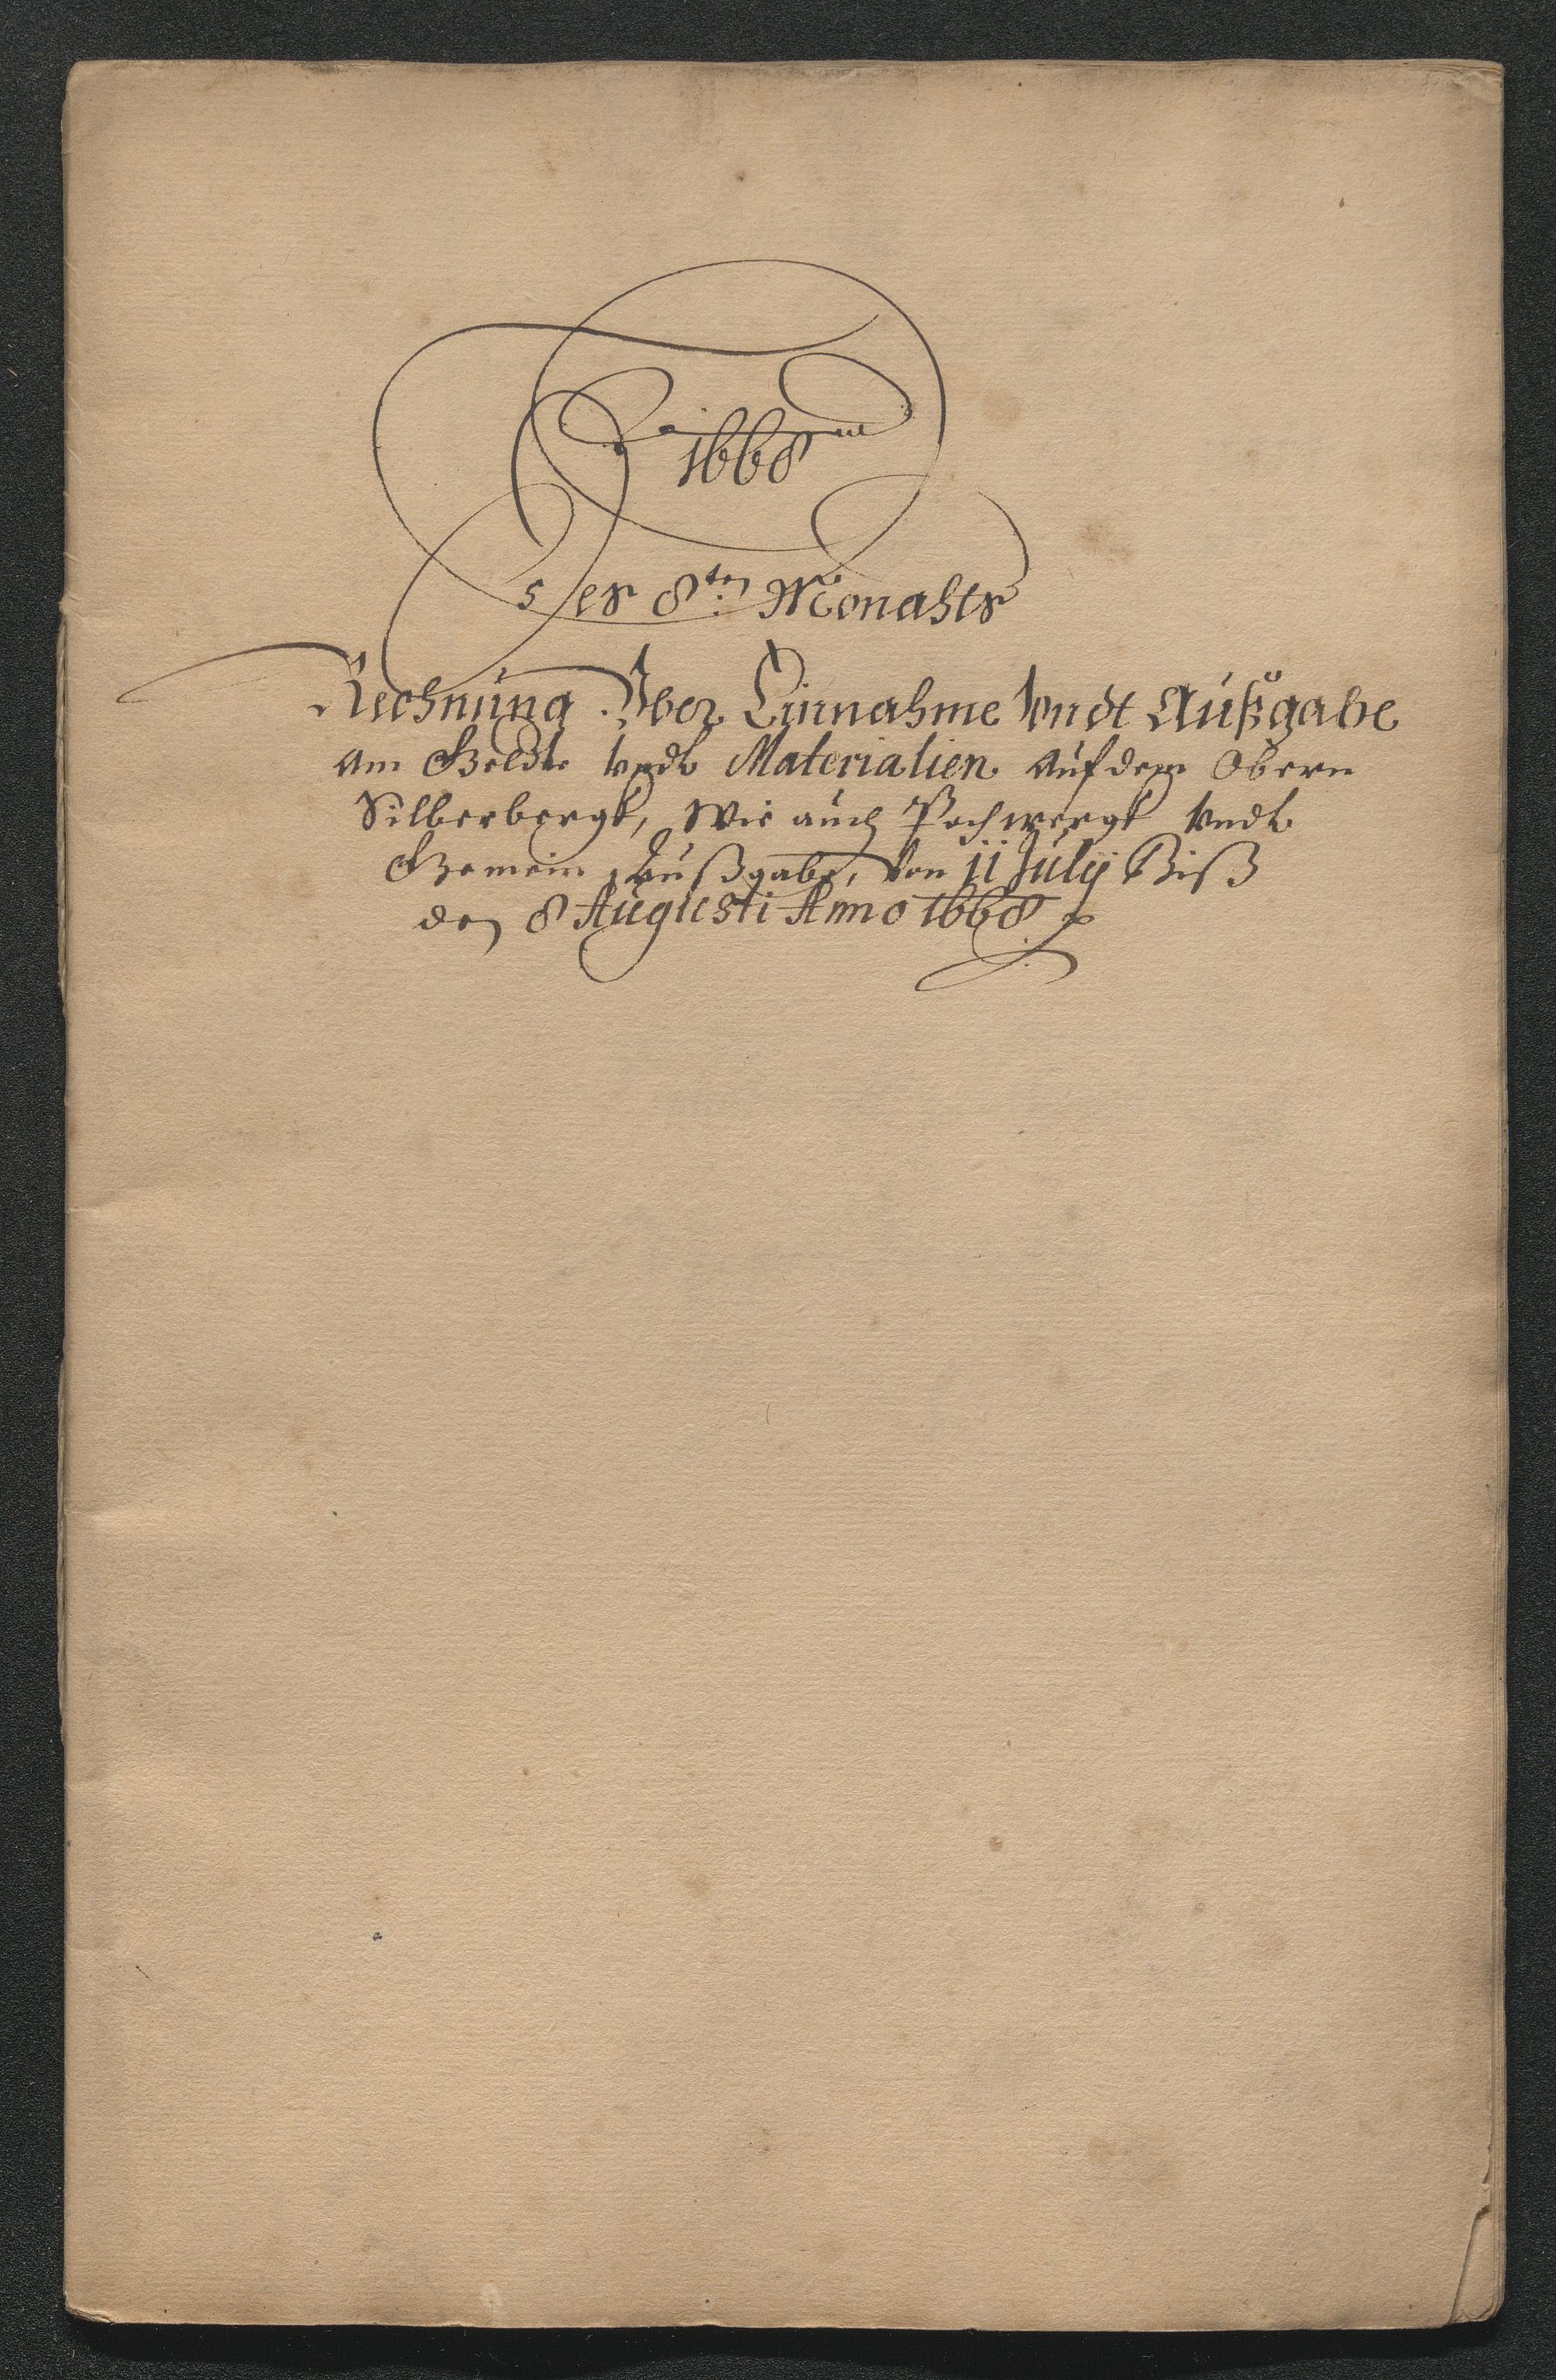 1668
Des 8ten Monahts
Rechnung Uber Einnahme Undt Außgabe
am Geldte undt Materialien auf dem Obern
Silberbergk, Wie auch Pochwergk undt
Gemein Außgabe, Von 11 Julij Biß
den 8 Augusti Anno 1668